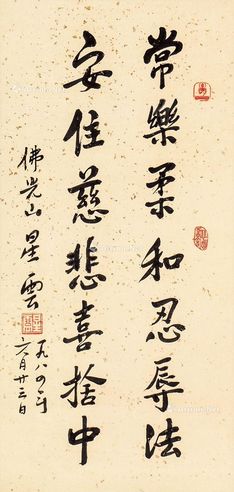 常樂柔和忍辱法
安住慈悲喜捨中
佛光山 星雲
一九八四年
六月廿三日